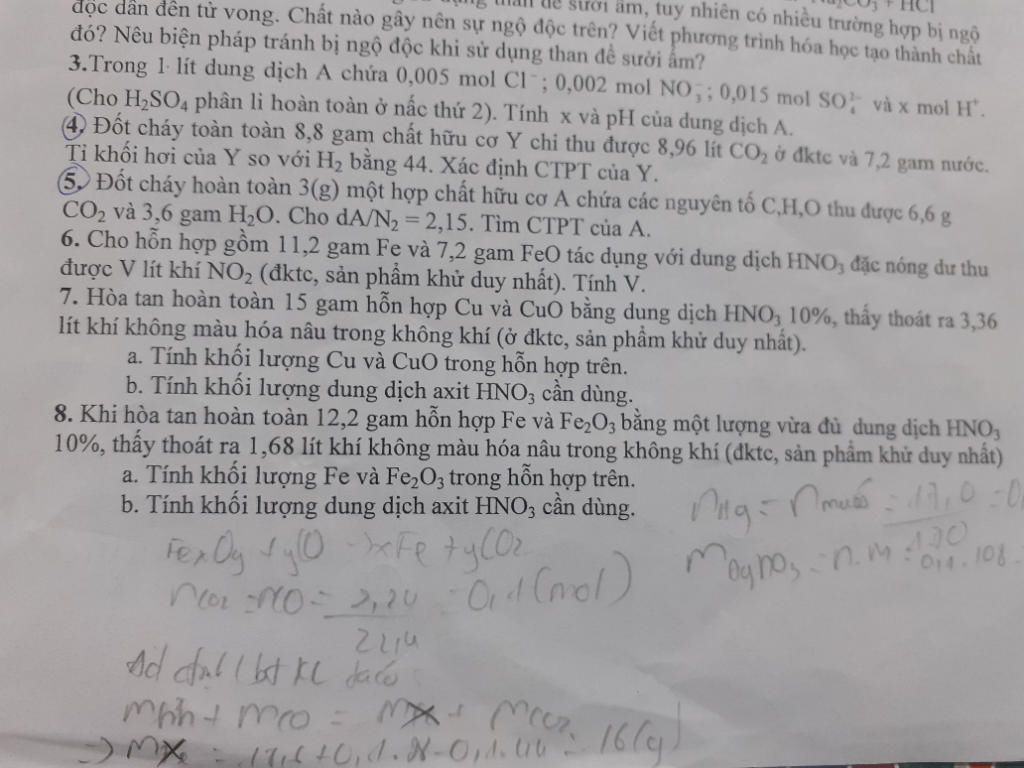 Na₂CO₃ + HCl
sưởi ấm, tuy nhiên có nhiều trường hợp bị ngộ
độc dẫn đến tử vong. Chất nào gây nên sự ngộ độc trên? Viết phương trình hóa học tạo thành chất
đó? Nêu biện pháp tránh bị ngộ độc khi sử dụng than để sưởi ấm?
3.Trong 1 lít dung dịch A chứa 0,005 mol Cl⁻; 0,002 mol NO₃⁻; 0,015 mol SO₄²⁻ và x mol H⁺.
(Cho H₂SO₄ phân li hoàn toàn ở nấc thứ 2). Tính x và pH của dung dịch A.
4. Đốt cháy toàn toàn 8,8 gam chất hữu cơ Y chỉ thu được 8,96 lít CO₂ ở đktc và 7,2 gam nước.
Tỉ khối hơi của Y so với H₂ bằng 44. Xác định CTPT của Y.
5. Đốt cháy hoàn toàn 3(g) một hợp chất hữu cơ A chứa các nguyên tố C,H,O thu được 6,6 g
CO₂ và 3,6 gam H₂O. Cho dA/N₂ = 2,15. Tìm CTPT của A.
6. Cho hỗn hợp gồm 11,2 gam Fe và 7,2 gam FeO tác dụng với dung dịch HNO₃ đặc nóng dư thu
được V lít khí NO₂ (đktc, sản phẩm khử duy nhất). Tính V.
7. Hòa tan hoàn toàn 15 gam hỗn hợp Cu và CuO bằng dung dịch HNO₃ 10%, thấy thoát ra 3,36
lít khí không màu hóa nâu trong không khí (ở đktc, sản phẩm khử duy nhất).
a. Tính khối lượng Cu và CuO trong hỗn hợp trên.
b. Tính khối lượng dung dịch axit HNO₃ cần dùng.
8. Khi hòa tan hoàn toàn 12,2 gam hỗn hợp Fe và Fe₂O₃ bằng một lượng vừa đủ dung dịch HNO₃
10%, thấy thoát ra 1,68 lít khí không màu hóa nâu trong không khí (đktc, sản phẩm khử duy nhất)
a. Tính khối lượng Fe và Fe₂O₃ trong hỗn hợp trên.
b. Tính khối lượng dung dịch axit HNO₃ cần dùng.
nAg = nmuối = 17,0 = 0,
170
mAgNO₃ = n.M = 0,1.108
FexOy + yCO → xFe + yCO₂
nCO₂ = nCO = 2,24 = 0,1 (mol)
22,4
Ad định l bt KL ta có
mhh + mCO = mX + mCO₂
→ mX = 17,6 + 0,1.28 - 0,1.44 = 16(g)